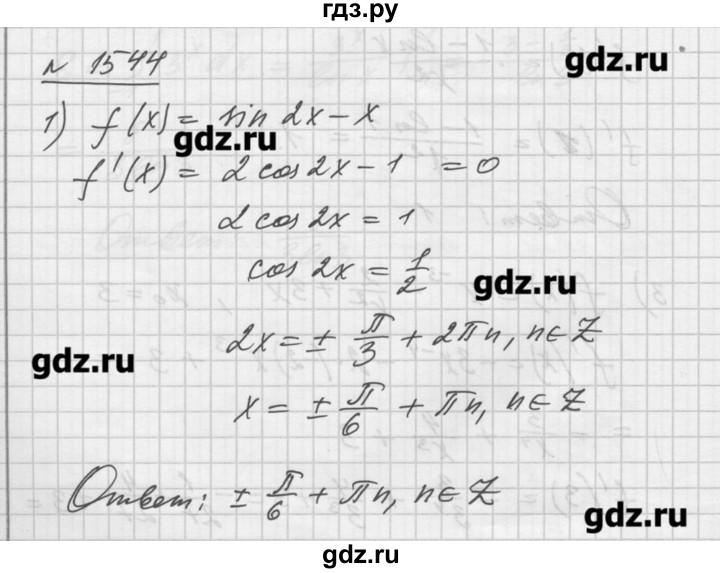 гдз.ру
№ 1544
gdz.ru
1) f(x) = sin 2x - x
gdz.ru
f'(x) = 2 cos 2x - 1 = 0
2 cos 2x = 1
cos 2x = 1/2
gdz.ru
2x = ± π/3 + 2πn, n∈Z
gdz.ru
x = ± π/6 + πn, n∈Z
Ответ: ± π/6 + πn, n∈Z
gdz.ru
gdz.ru